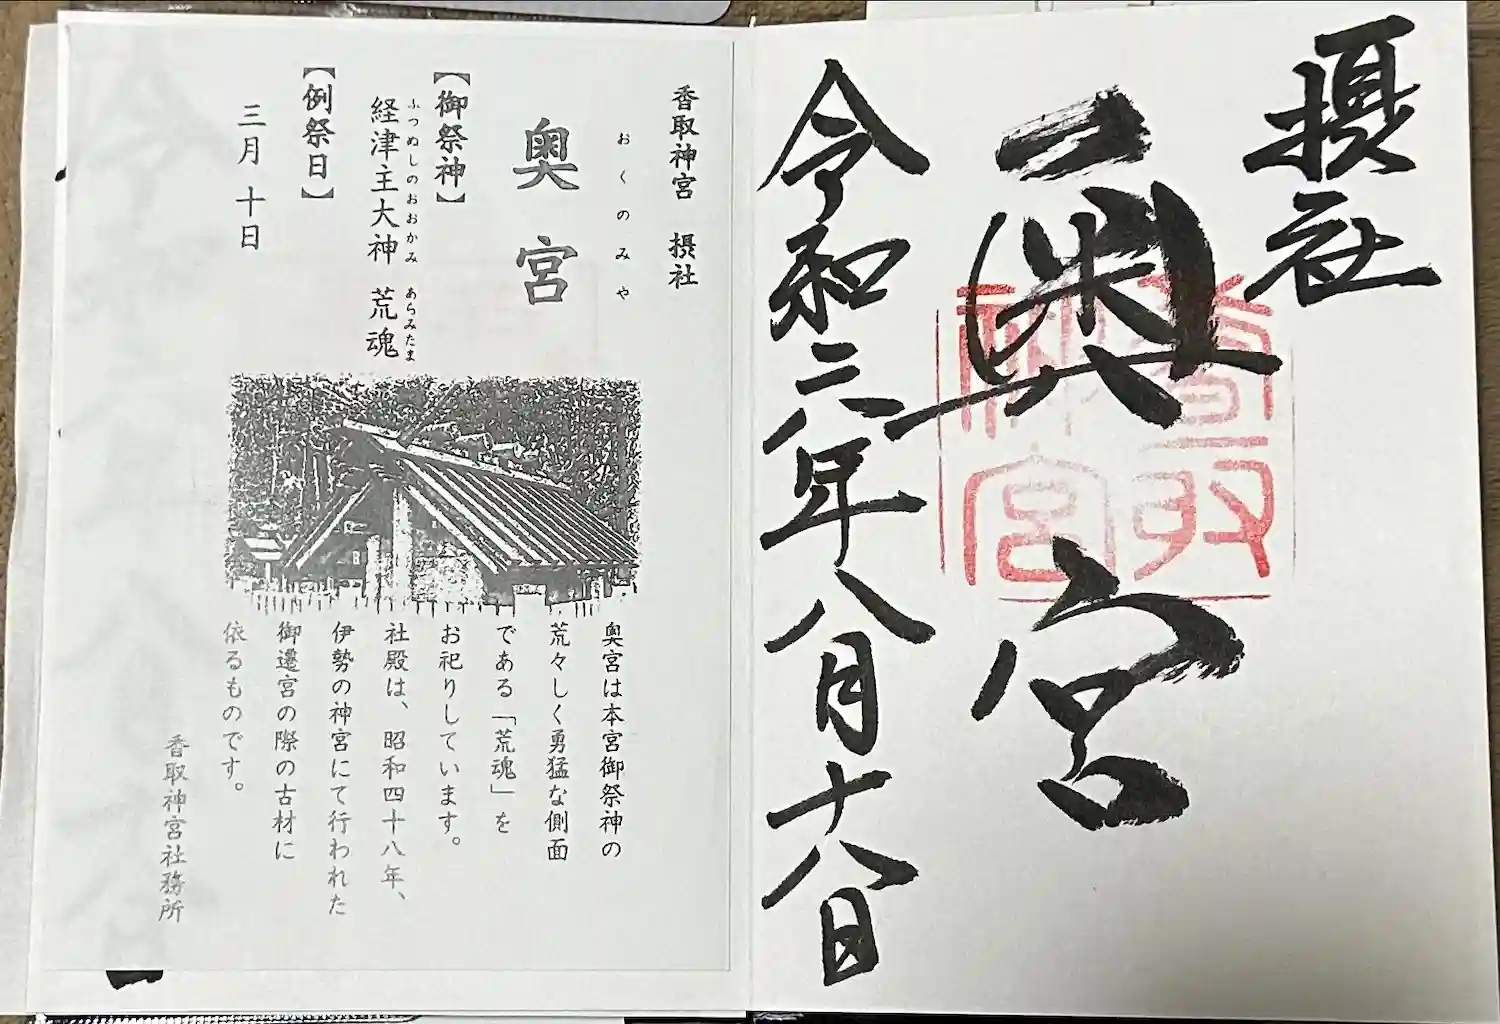 摂社
奥宮
香取神宮
令和六年八月十八日
香取神宮 摂社
おくのみや
奥宮
【御祭神】
ふつぬしのおおかみ あらみたま
経津主大神 荒魂
【例祭日】
三月十日
奥宮は本宮御祭神の
荒々しく勇猛な側面
である「荒魂」を
お祀りしています。
社殿は、昭和四十八年、
伊勢の神宮にて行われた
御遷宮の際の古材に
依るものです。
香取神宮社務所